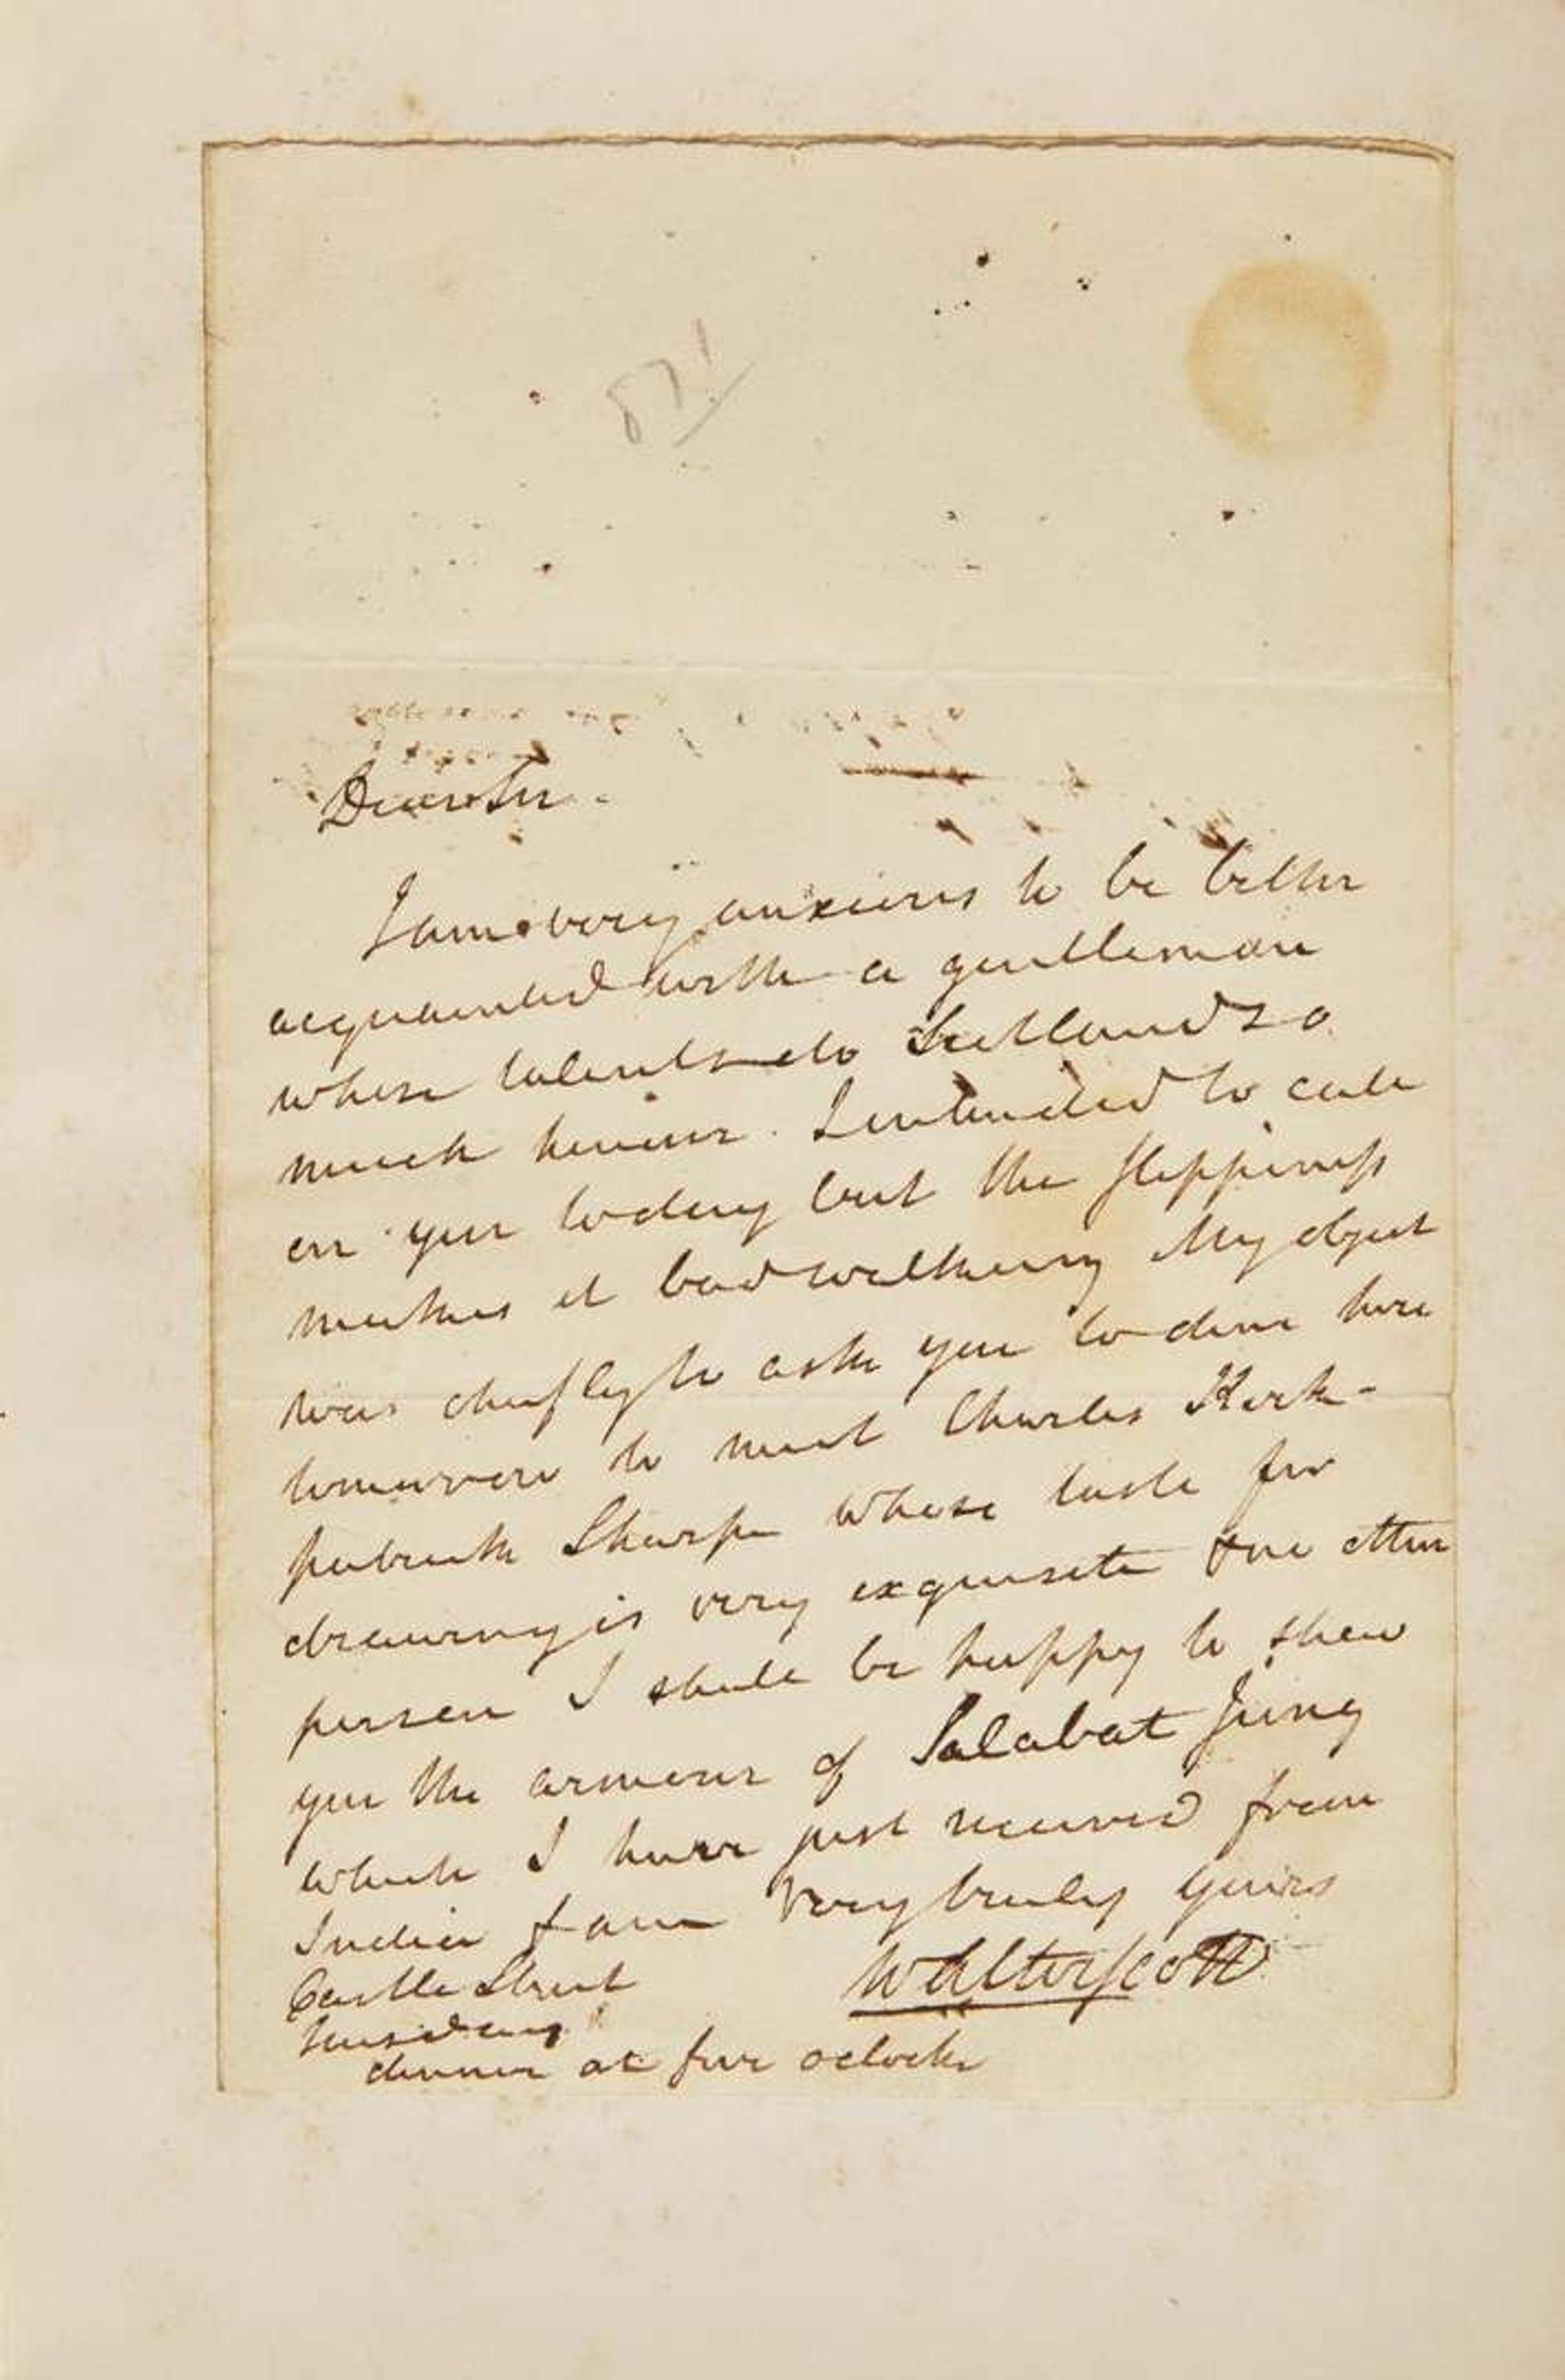 871
Dear Sir
I am very anxious to be better
acquainted with a gentleman
whose talents do Scotland so
much honour. I intended to call
on you today but the slipperiness
makes it bad walking My object
was chiefly to ask you to dine here
tomorrow to meet Charles Kirk-
patrick Sharpe whose taste for
drawing is very exquisite &
person I shall be happy to shew
you the armour of Salabat Jung
which I have just received from
India I am very truly yours
Walter Scott
Castle Street
tuesday
dinner at five oclock